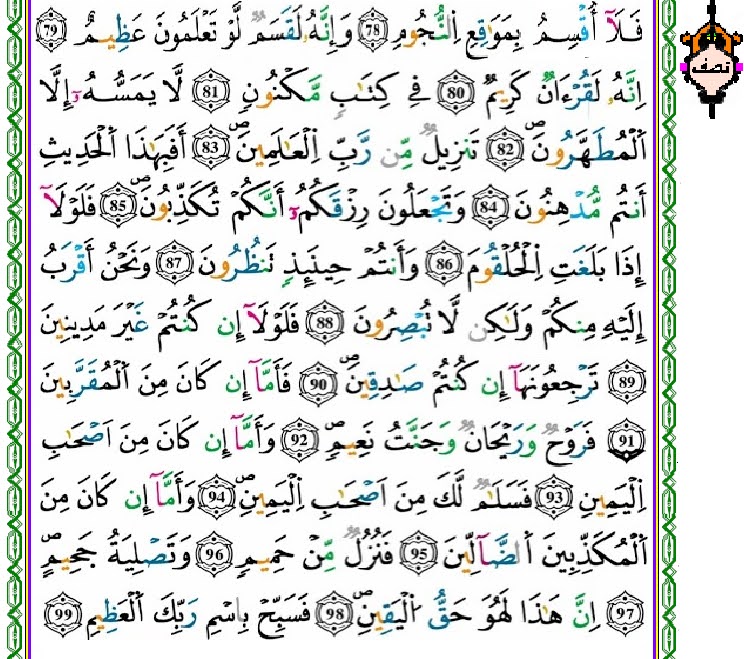 فَلَآ أُقْسِمُ بِمَوَٰقِعِ اِ۬لنُّجُومِ 78 وَإِنَّهُۥ لَقَسَمٌ لَّوْ تَعْلَمُونَ عَظِيمٌ 79
نصف
اِنَّهُۥ لَقُرْءَانٌ كَرِيمٌ 80 فِے كِتَٰبٍ مَّكْنُونٍ 81 لَّا يَمَسُّهُۥٓ إِلَّا
اَ۬لْمُطَهَّرُونَۖ 82 تَنزِيلٌ مِّن رَّبِّ اِ۬لْعَٰلَمِينَۖ 83 أَفَبِهَٰذَا اَ۬لْحَدِيثِ
أَنتُم مُّدْهِنُونَ 84 وَتَجْعَلُونَ رِزْقَكُمُۥٓ أَنَّكُمْ تُكَذِّبُونَۖ 85 فَلَوْلَآ
إِذَا بَلَغَتِ اِ۬لْحُلْقُومَ 86 وَأَنتُمْ حِينَئِذٍ تَنظُرُونَ 87 وَنَحْنُ أَقْرَبُ
إِلَيْهِ مِنكُمْ وَلَٰكِن لَّا تُبْصِرُونَ 88 فَلَوْلَآ إِن كُنتُمْ غَيْرَ مَدِينِينَ
89 تَرْجِعُونَهَآ إِن كُنتُمْ صَٰدِقِينَۖ 90 فَأَمَّآ إِن كَانَ مِنَ اَ۬لْمُقَرَّبِينَ
91 فَرَوْحٌ وَرَيْحَانٌ وَجَنَّتُ نَعِيمٍۖ 92 وَأَمَّآ إِن كَانَ مِنَ اَصْحَٰبِ
اِ۬لْيَمِينِ 93 فَسَلَٰمٌ لَّكَ مِنَ اَصْحَٰبِ اِ۬لْيَمِينِۖ 94 وَأَمَّآ إِن كَانَ مِنَ
اَ۬لْمُكَذِّبِينَ اَ۬لضَّآلِّينَ 95 فَنُزُلٌ مِّنْ حَمِيمٍ 96 وَتَصْلِيَةُ جَحِيمٍۖ
97 اِنَّ هَٰذَا لَهُوَ حَقُّ اُ۬لْيَقِينِۖ 98 فَسَبِّحْ بِاسْمِ رَبِّكَ اَ۬لْعَظِيمِۖ 99